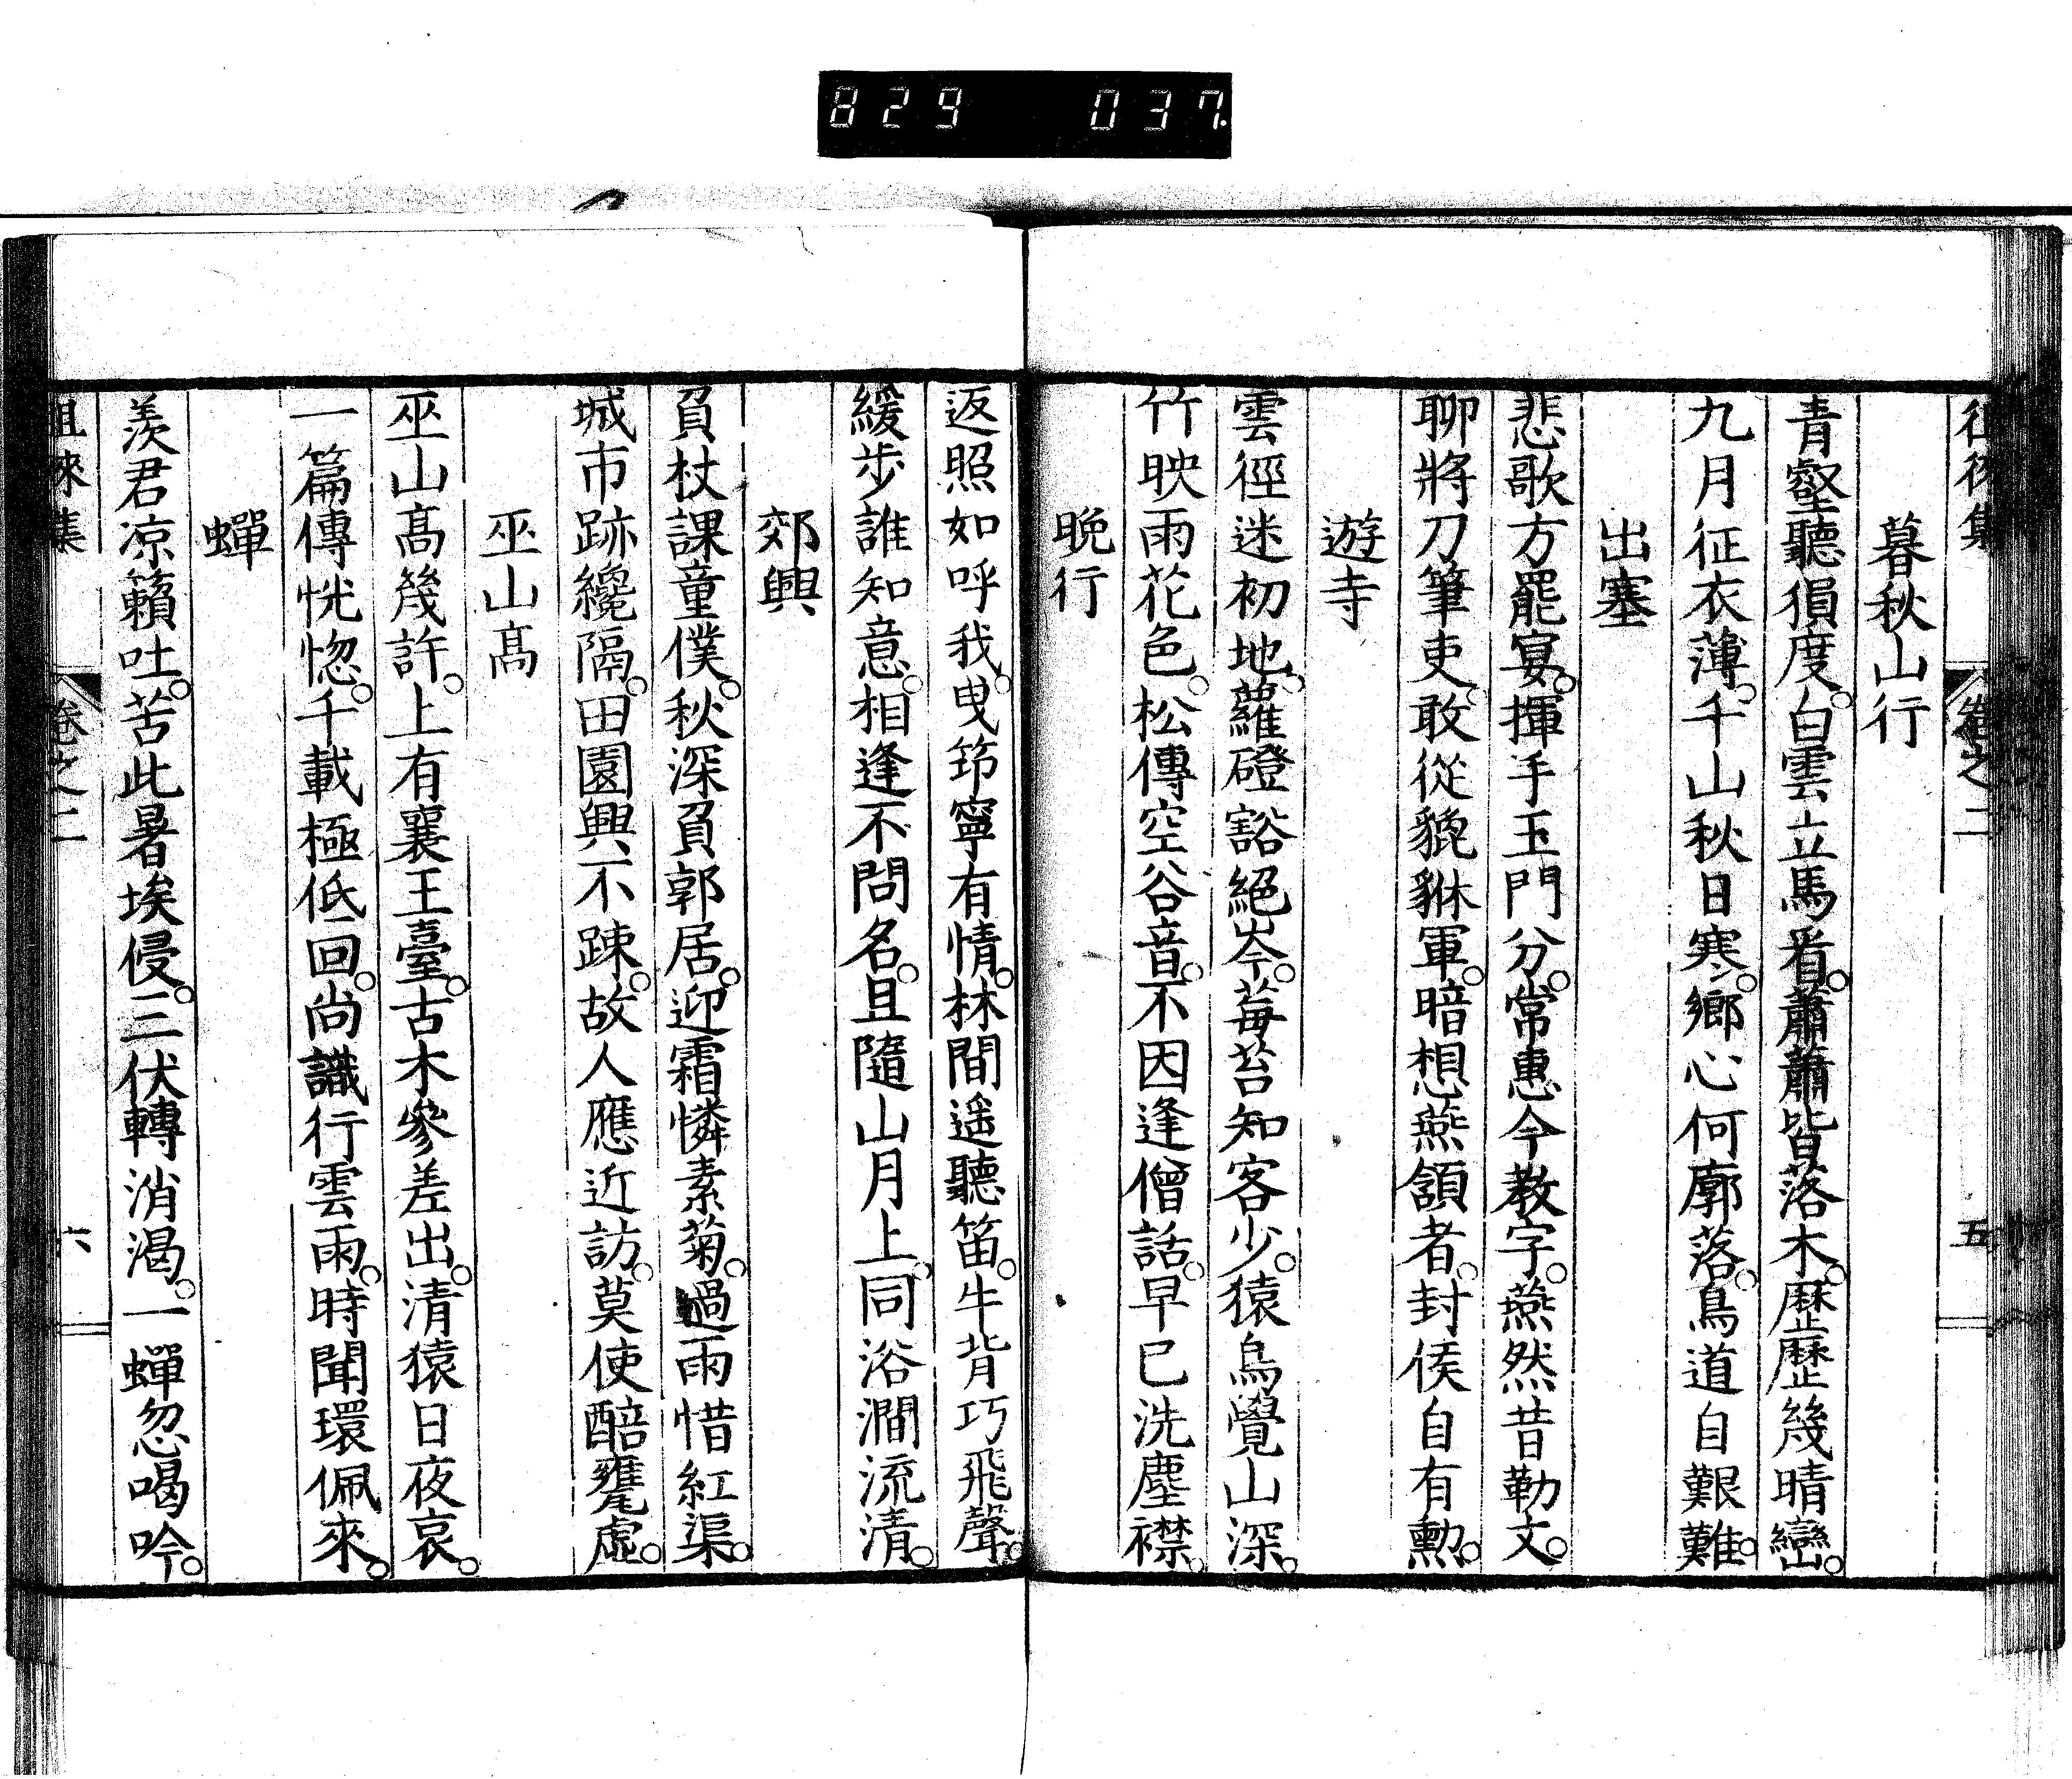 829 037.
徂徠集 卷之二 五
暮秋山行
青壑聽猿度。白雲立馬看。蕭蕭皆落木。歷歷幾晴巒。
九月征衣薄。千山秋日寒。鄉心何廓落。鳥道自艱難。
出塞
悲歌方罷宴。揮手玉門分。常惠今教字。燕然昔勒文。
聊將刀筆吏。敢從貔貅軍。暗想燕頷者。封侯自有勳。
遊寺
雲徑迷初地。蘿磴豁絕岑。莓苔知客少。猿鳥覺山深。
竹映雨花色。松傳空谷音。不因逢僧話。早已洗塵襟。
晚行
返照如呼我。曳筇寧有情。林間遥聽笛。牛背巧飛聲。
緩步誰知意。相逢不問名。且隨山月上。同浴澗流清。
郊興
負杖課童僕。秋深負郭居。迎霜憐素菊。過雨惜紅渠。
城市跡纔隔。田園興不踈。故人應近訪。莫使醅甕虛。
巫山髙
巫山髙幾許。上有襄王臺。古木參差出。清猿日夜哀。
一篇傳恍惚。千載極低回。尚識行雲雨。時聞環佩來。
蟬
羨君凉籟吐。苦此暑埃侵。三伏轉消渴。一蟬忽喝吟。
徂徠集 卷之二 六